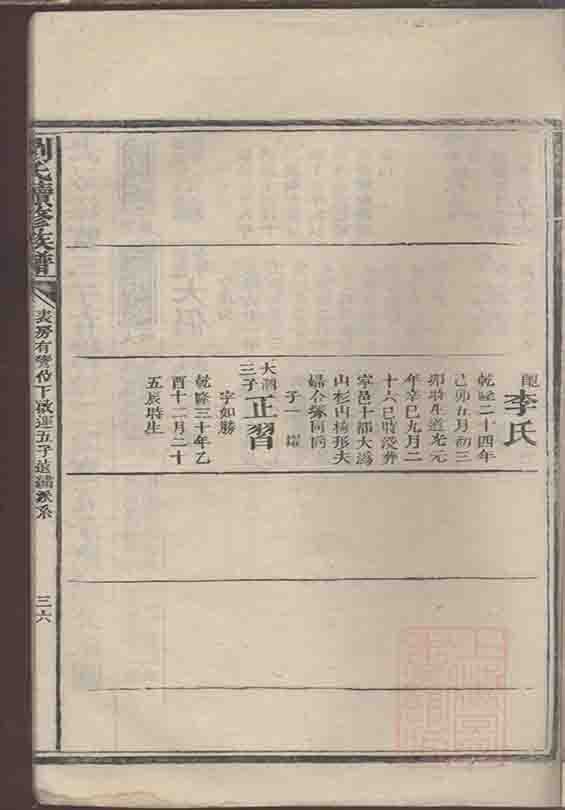 配李氏
乾隆二十四年
己卯五月初三
卯時生道光元
年辛巳九月二
十六巳時歿葬
寧邑十都大溈
山杉山
夫
婦合塚同向
子一
大
三子
正習
字如勝
乾隆三十年乙
酉十二月二十
五辰時生
劉氏續修族譜
房有
下啟運五子
派系
三六